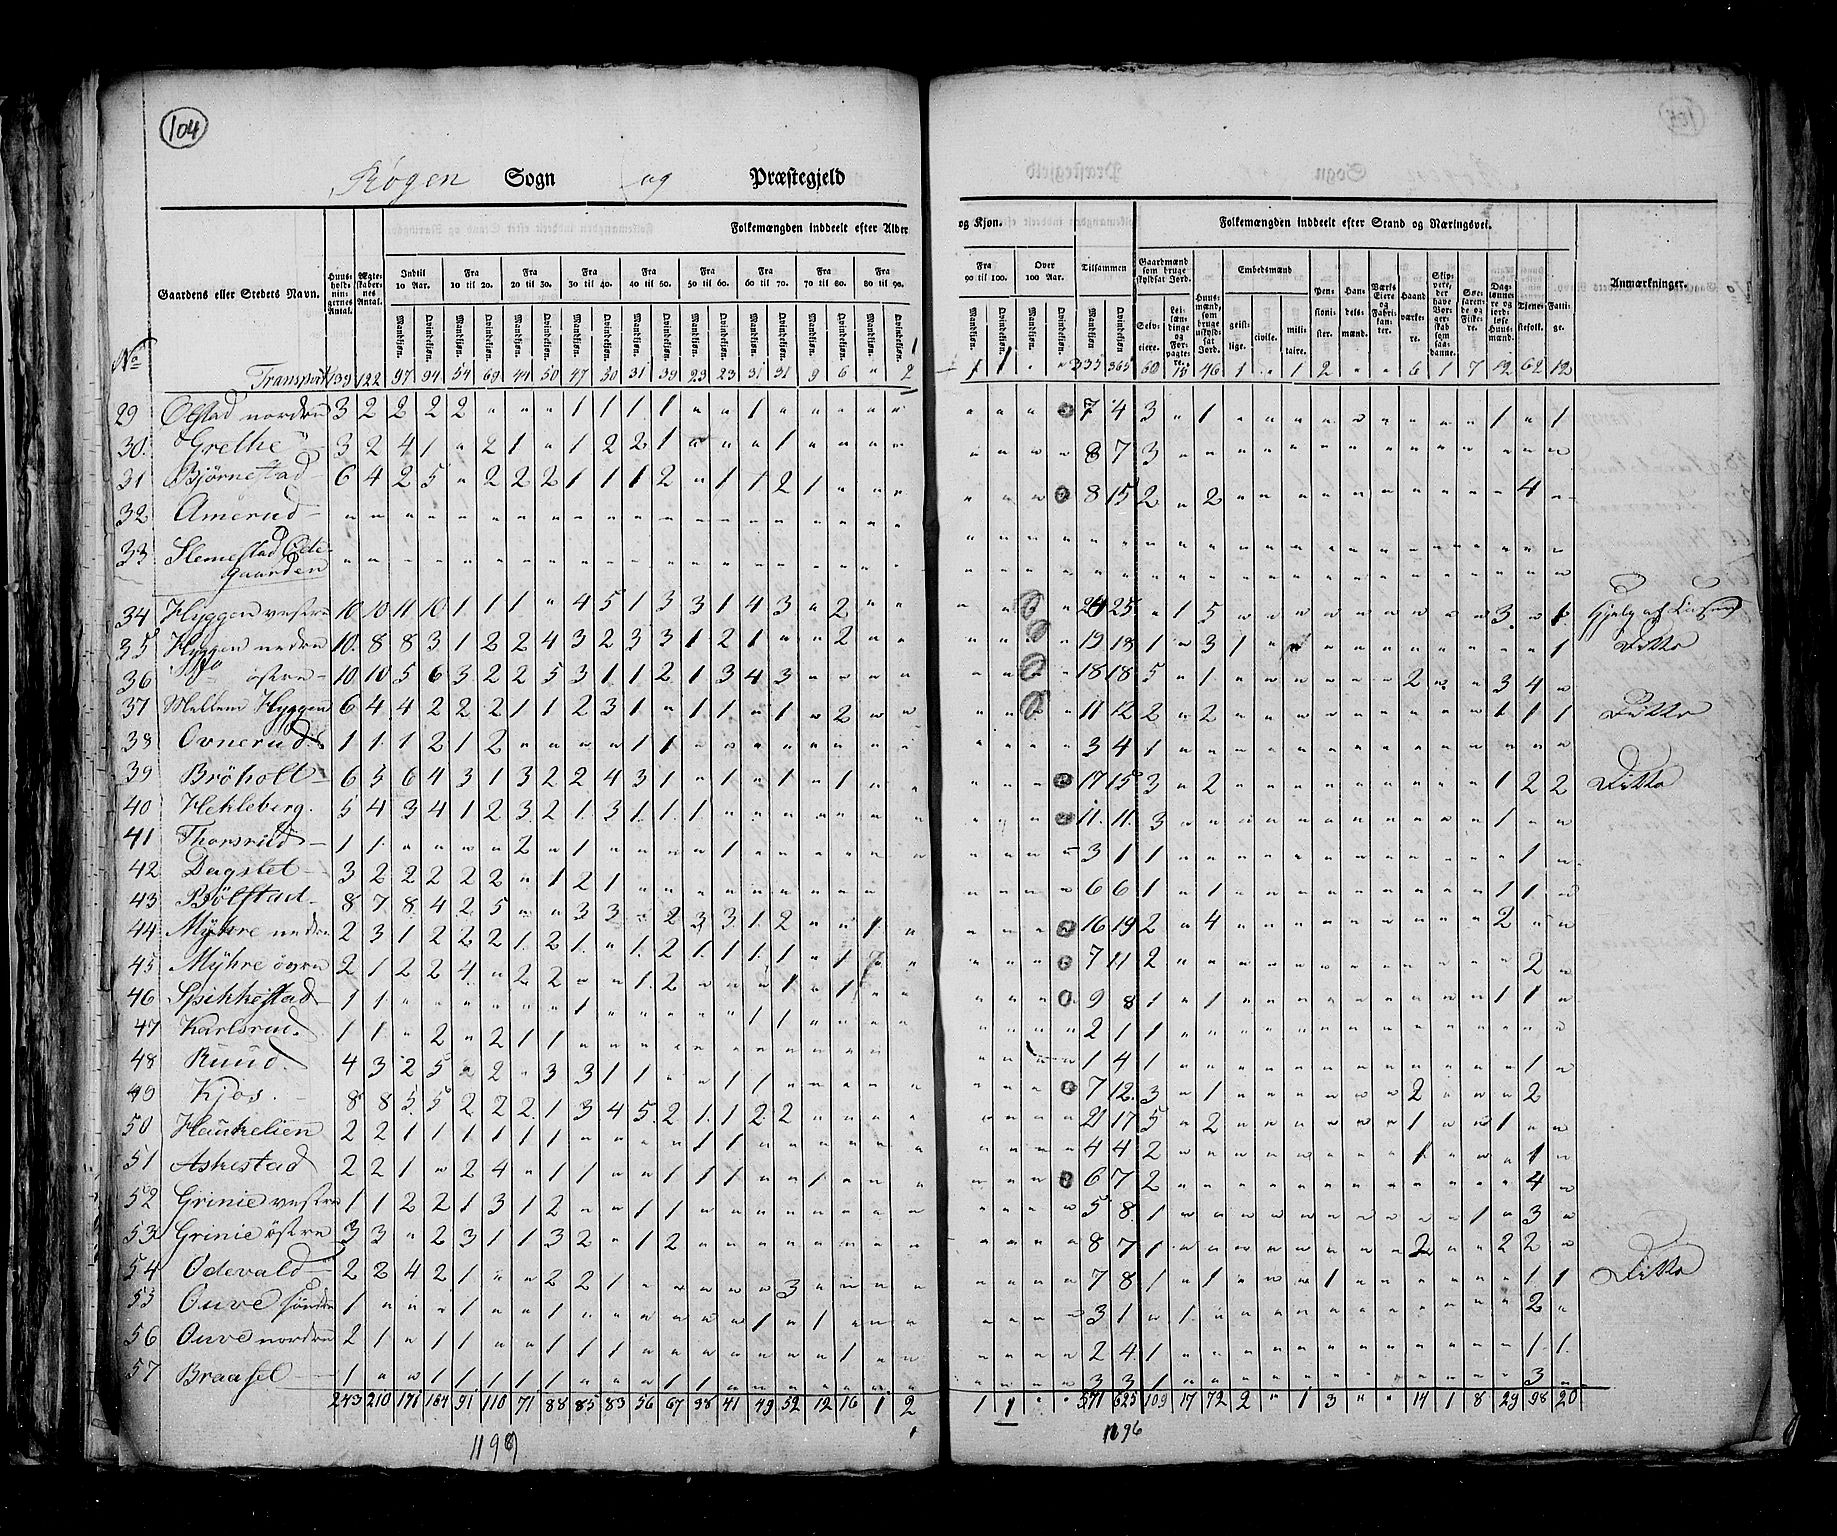 104
Røgen Sogn og Præstegjeld
Folkemængden inddeelt efter Alder og Kjøn.
Folkemængden inddeelt efter Stand og Næringsvei.
Gaardens eller Stedets Navn.
Huusholdningernes Antal.
Ægteskabernes Antal.
Indtil 10 Aar. Fra 10 til 20. Fra 20 til 30. Fra 30 til 40. Fra 40 til 50. Fra 50 til 60. Fra 60 til 70. Fra 70 til 80. Fra 80 til 90. Fra 90 til 100. Over 100 Aar. Tilsammen
Mandkjøn. Qvindekjøn.
Gaardmænd som bruge skyldsat Jord.
Selveiere. Leilændinge og Forpagtere.
Huusmænd, som bruge uskyldsat Jord.
Embedsmænd
geistlige. civile. militaire.
Pensionister. Handelsmænd. Værks Eiere og Fabrikanter. Haandværkere. Skippere, der have Borgerskab som saadanne. Søefarende og Fiskere. Daglønnere og jordløse Huusmænd. Tjenestefolk. Fattige.
Anmærkninger.
No
Transport 139 122 97 94 54 69 44 50 47 30 31 39 23 23 31 31 9 6 " 2 1 1 " " 335 365 60 15 46 1 " 1 2 " " 6 1 7 12 62 12
29 Ofstad nordre 3 2 2 2 2 " " " 1 1 1 1 " " 1 " " " " " " " " " 7 4 3 " 1 " " " " " " " " " 1 " 1
30. Grethe 3 2 4 1 " 2 1 " 1 2 2 1 " " " 1 " " " " " " " " 8 7 3
31 Bjørnestad 6 4 2 5 " 2 2 2 1 1 1 2 " 1 1 2 1 " " " " " " " 8 15 2 " 2 " " " " " " " " " " 4 "
32 Amerud
33 Slemestad Øde-
gaarden
34 Hyggen vestre 10 10 11 10 1 1 1 " 4 5 1 3 3 1 4 3 " 2 " " " " " 25 " 1 5 " " " " " " " " " 3 " 1
35 Hyggen nedre 10 8 8 3 1 2 2 4 3 2 3 3 1 2 1 " " 2 " " 19 18 1 " 3 1 " " " " " " " " " " 1 Ditto
36 østre 10 10 5 6 3 2 2 5 3 1 1 2 1 3 4 3 " " " " 18 18 5 " 1 " " " " " " 2 " " 3 4 "
37 Mellem Hyggen 6 4 4 2 2 2 1 1 2 3 1 " 1 1 " 1 " 2 " " 11 12 2 " 2 " " " " " " " " " 1 1 1 Ditto
38 Ovnerud 1 1 1 2 1 2 " " " " 1 1 " " " " " " " " 3 4 1
39 Bröholt 6 5 6 4 3 1 3 2 2 4 3 1 " 1 " 1 " 1 " " 17 15 3 " 2 " " " " " " " " " 1 2 2 Ditto
40 Hekleberg. 5 4 3 4 1 2 3 2 1 3 1 1 1 " " " " " " " 11. 11. 3 " " " " " " " " " " " 1 " "
41 Thorsrud 1 1 " " " " 2 " 1 " " " " 1 " " " " " " 3 1 1 " " " " " " " " " " " " 1 "
42 Dagslet 3 2 2 2 2 2 " 1 2 1 " " " " " " " " " " 6 6 1 " 1 " " " " " " " " " 1 1 "
43 Bölstad 8 7 8 4 2 5 " " 3 3 " 2 3 3 1 2 " " 1 " 16 19 2 " 4 " " " " " " " " " 2 " "
44 Myhre nedre 2 3 1 2 2 2 1 2 1 " 1 2 1 1 1 1 " 1 " " 7 11 2 " " " " " " " " " " " " 2 "
45 Myhre övre 2 1 2 2 4 " 2 2 " " 1 2 " " " 1 " 1 " " 9 8 1 " 1 " " " " " " " " " 1 1 "
46 Spikkestad 1 1 " " " " " " 1 " " " " " 1 1 " " " " 2 1 1
47 Karlsrud. 1 1 " 2 " 2 1 1 " " " " " " " " " " " " 1 4 1 " " " " " " " " " " " " 1 "
48 Ruud. 4 3 2 5 " 2 " 3 3 1 1 " " 1 1 " " " " " 7 12. 3 " 1 " " " " " " 2 " " " 2
49 Kjos. 8 8 5 5 2 2 2 1 3 4 5 2 1 1 2 2 " " " " 21 17 5 " 2 " " " " " " 1 " " 1 " "
50 Haukelien 2 2 1 1 1 1 1 1 " " " " 1 1 " " " " " " 4 4 2 " " " " " " " " 1 " " " 1 "
51 Askestad 2 2 1 " 2 4 " 1 1 " " 1 1 1 " 1 " " " " 6 7 2 " " " " " " " " " " " " 4 "
52 Grinie vestre 1 1 2 2 1 3 1 2 " " 1 1 " " " " " " " " 5 8 1 " " " " " " " " " " 1 " 3 "
53 Grinie östre 3 3 " 2 3 1 1 3 2 " 1 2 " " " " " " " " 8 7 1 " " " " " " " " 2 " " 2 2 "
54 Odevald 2 2 4 2 1 " " 2 2 1 " " " " " 3 " " " " 7 8 1 " 1 " " " 1 " " " " " " 1 1 Ditto
55 Ouve söndre 1 " " " 1 " " 1 " " " " " " 1 " 1 " " " 3 1 " 1 " " " " " " " " " " " 2 "
56 Ouve nordre 2 1 " 1 1 " " 1 1 1 " " " " " " " 1 " " 2 4 1 " " " " " " " " " " " " 1 1
57 Braasel 1 " " 1 1 1 1 1 " " 1 1 " " " " " " " " 3 3 1 " " " " " " " " " " " " 3 "
243 210 171 164 91 110 71 88 85 83 56 67 38 41 49 52 12 16 1 2 1 1 " " 571 625 109 17 72 2 " 1 3 " " 14 1 8 29 98 20
1196